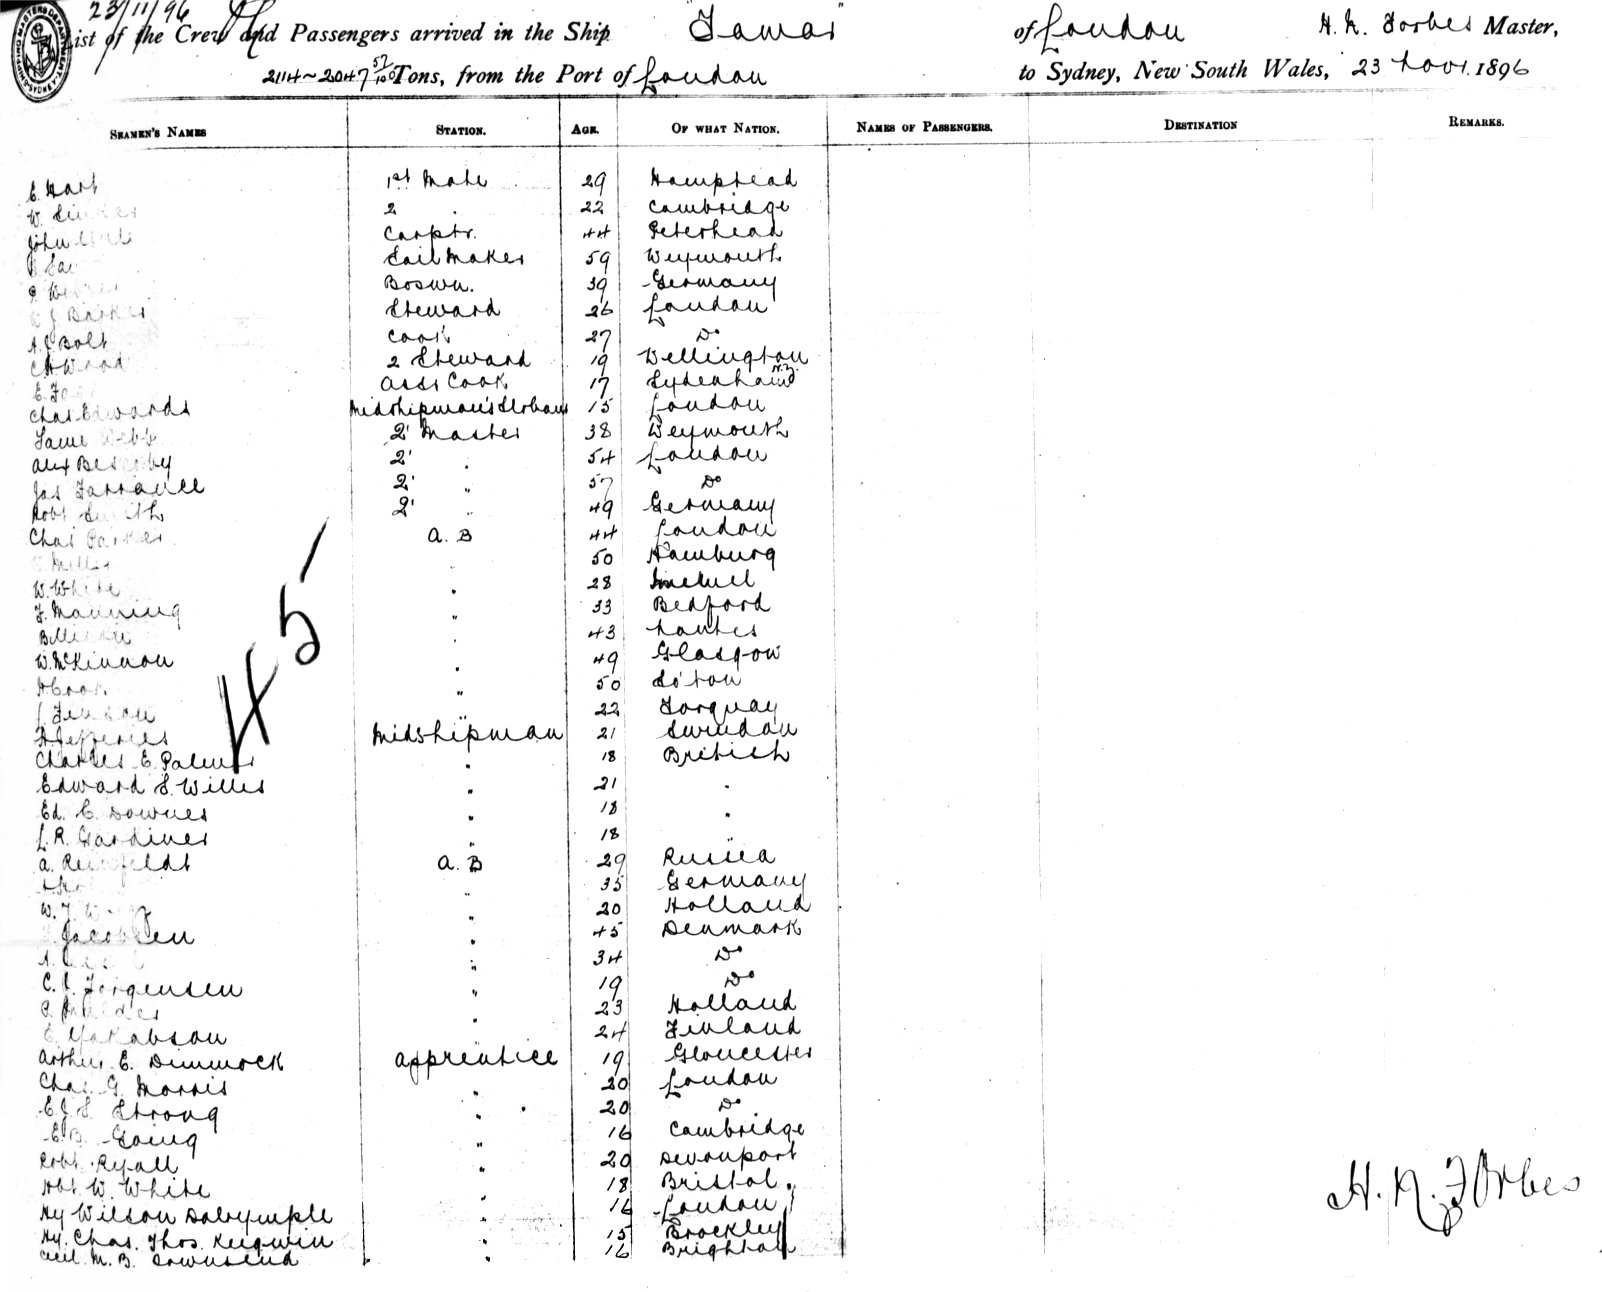 23/11/96
List of the Crew and Passengers arrived in the Ship "Tamar" of London H. N. Forbes Master,
2114~2047 57/100 Tons, from the Port of London to Sydney, New South Wales, 23 Novr. 1896
SHIPPING MASTERS DEPARTMENT SYDNEY
SEAMEN'S NAMES STATION. AGE. OF WHAT NATION. NAMES OF PASSENGERS. DESTINATION REMARKS.
E. Hart 1st Mate 29 Hampstead
W. 2 " 22 Cambridge
John Carptr. 44 Peterhead
Sail Maker 59 Weymouth
Boswn. 39 Germany
W J Barker Steward 26 London
A. J Bolt Cook 27 Do
C H Wood 2 Steward 19 Wellington N.Z.
E. Asst Cook 17 Sydenham
Chas Edwards Midshipman's 15 London
Webb 2r Master 38 Weymouth
Alex 2r " 54 London
Jas Farrance 2r " 57 Do
Robt Smith 2r " 49 Germany
Chas Parker A. B 44 London
Miller " 50 Hamburg
W. White " 28
F. Manning " 33 Bedford
" 43 Nantes
W. McKinnon " 49 Glasgow
" 50 So'ton
" 22 Torquay
H Jefferies Midshipman 21 Swindon
Charles E. Palmer " 18 British
Edward S. Willis " 21 "
Ed. C. Downes " 18 "
L. R. Gardiner " 18 "
A. A. B 29 Russia
" 35 Germany
W. " 20 Holland
Jacobsen " 45 Denmark
" 34 Do
C. Jorgensen " 19 Do
Mulder " 23 Holland
E. Yakobson " 24 Finland
Arthur E. Dimmock Apprentice 19 Gloucester
Chas G. Morris " 20 London
E. J. S. Strong " 20 Do
E. B. Going " 16 Cambridge
Robt Ryall " 20 Devonport
Hbt W. White " 18 Bristol.
Hy Wilson Dalrymple " 16 London
Hy. Chas. Thos. Keigwin " 15 Brockley
Cecil M. B. Townsend " 16 Brighton
45
H. N. Forbes